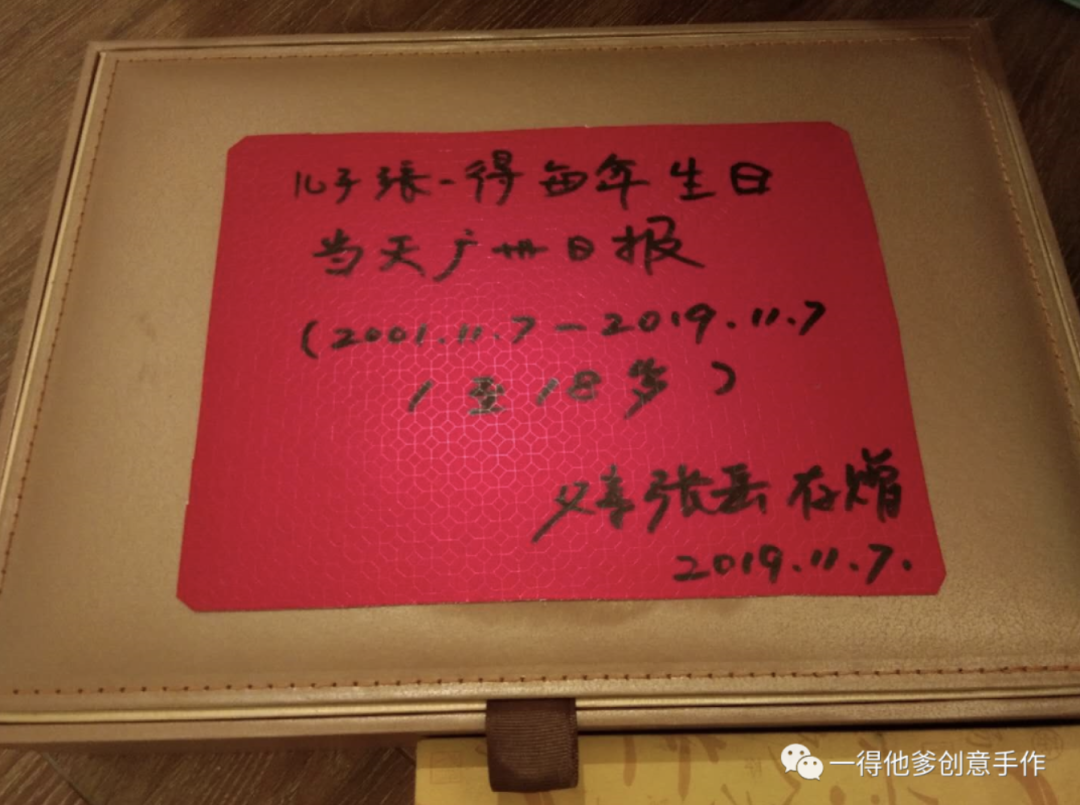 儿子张一得每年生日
当天广州日报
(2001.11.7—2019.11.7
1至18岁)
父亲张岳存赠
2019.11.7.
一得他爹创意手作